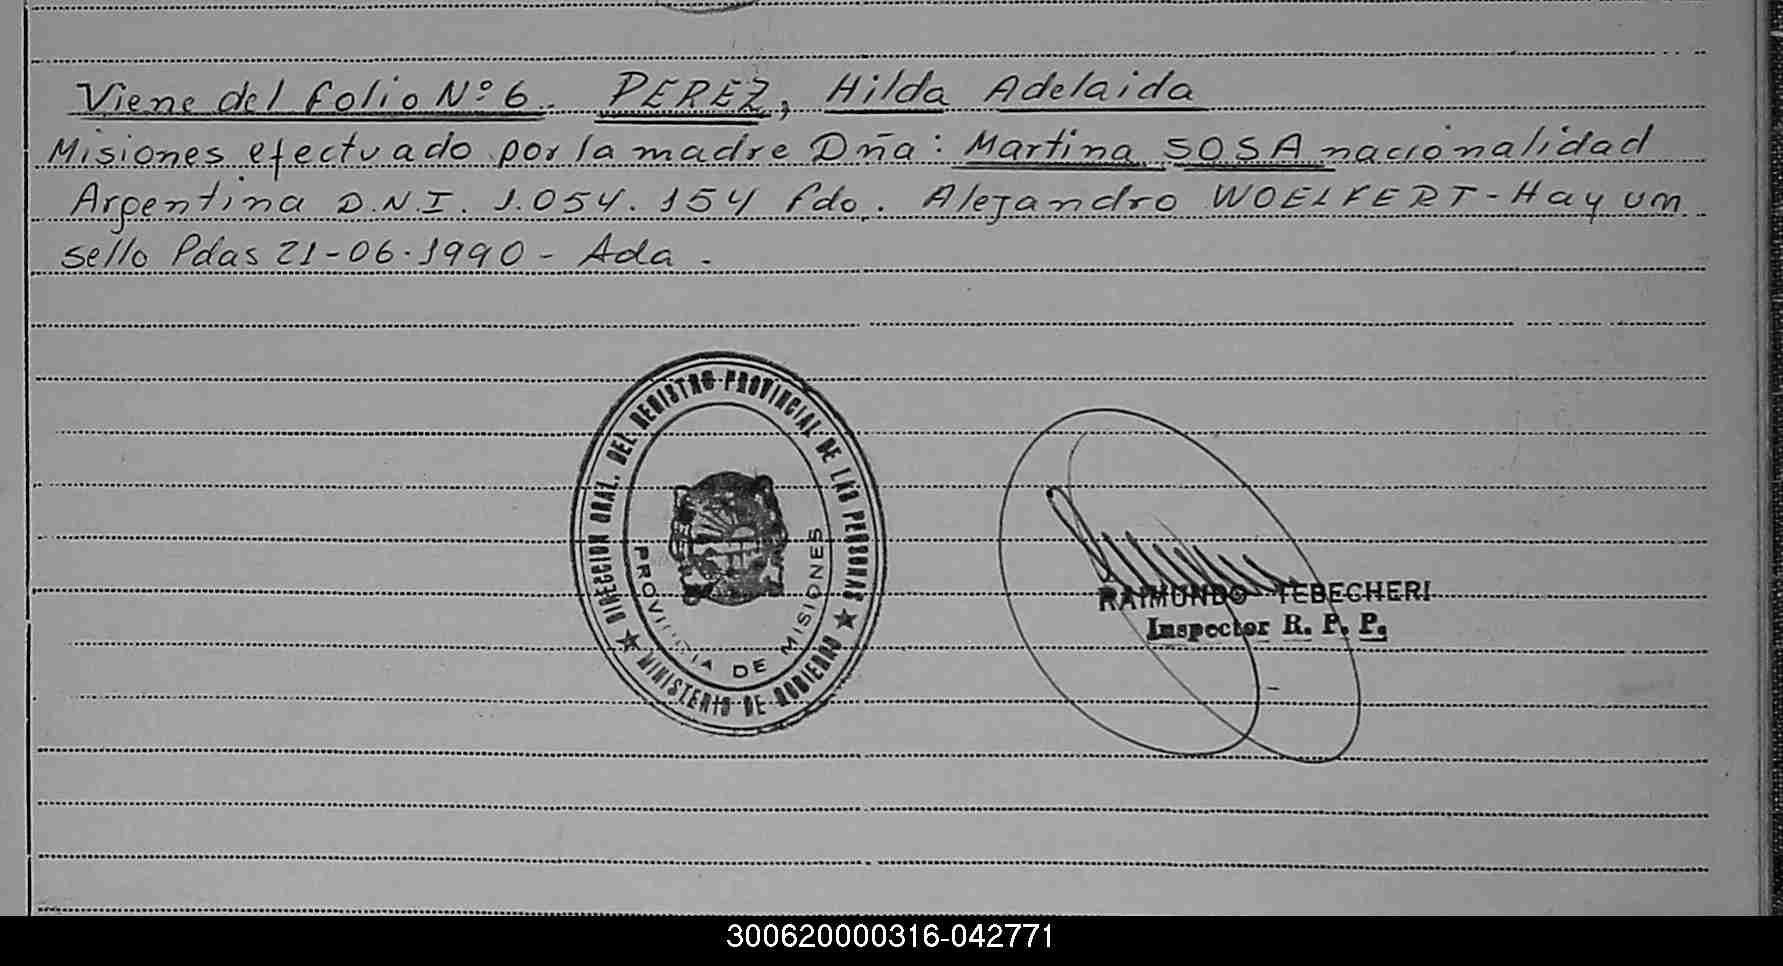 Viene del folio Nº 6. PEREZ, Hilda Adelaida
Misiones efectuado por la madre Dña: Martina SOSA nacionalidad
Argentina D.N.I. 1.054.154 fdo. Alejandro WOELFERT - Hay um
sello Pdas 21-06-1990 - Ada.
DIRECCION GRAL. DEL REGISTRO PROVINCIAL DE LAS PERSONAS
MINISTERIO DE GOBIERNO
PROVINCIA DE MISIONES
RAIMUNDO TEBECHERI
Inspector R. P. P.
300620000316-042771